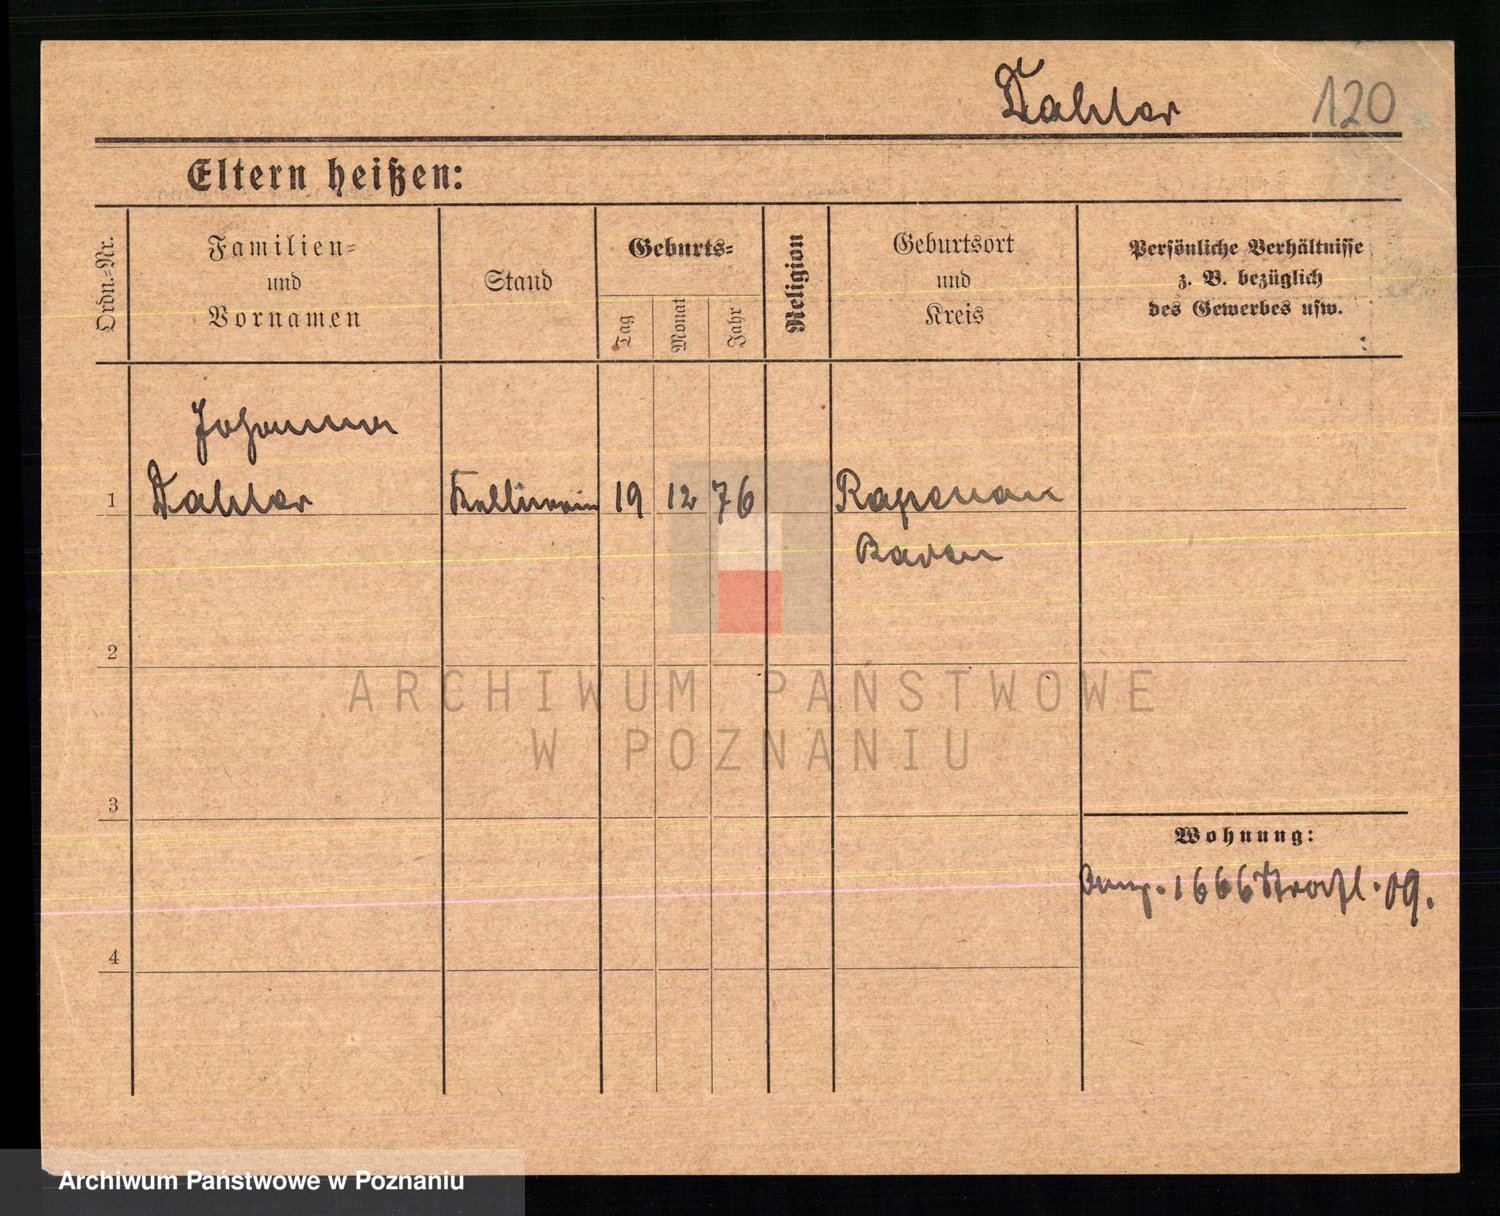 Dahler 120
Eltern heißen:
Ordn.=Nr.
Familien=
und
Vornamen
Stand
Geburts=
Tag
Monat
Jahr
Religion
Geburtsort
und
Kreis
Persönliche Verhältnisse
z. B. bezüglich
des Gewerbes usw.
Johanna
1 Dahler Kellnerin 19 12 76 Rapenau
Baden
2
3
4
Wohnung:
1666 09.
ARCHIWUM PAŃSTWOWE
W POZNANIU
Archiwum Państwowe w Poznaniu